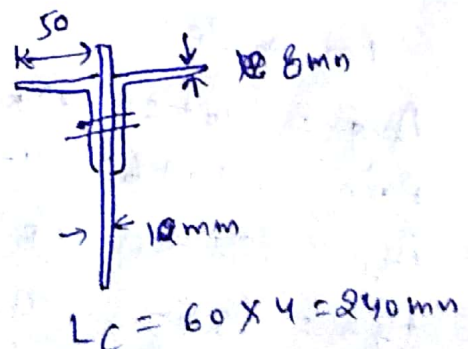 50
8mm
12mm
LC = 60 X 4 = 240mm